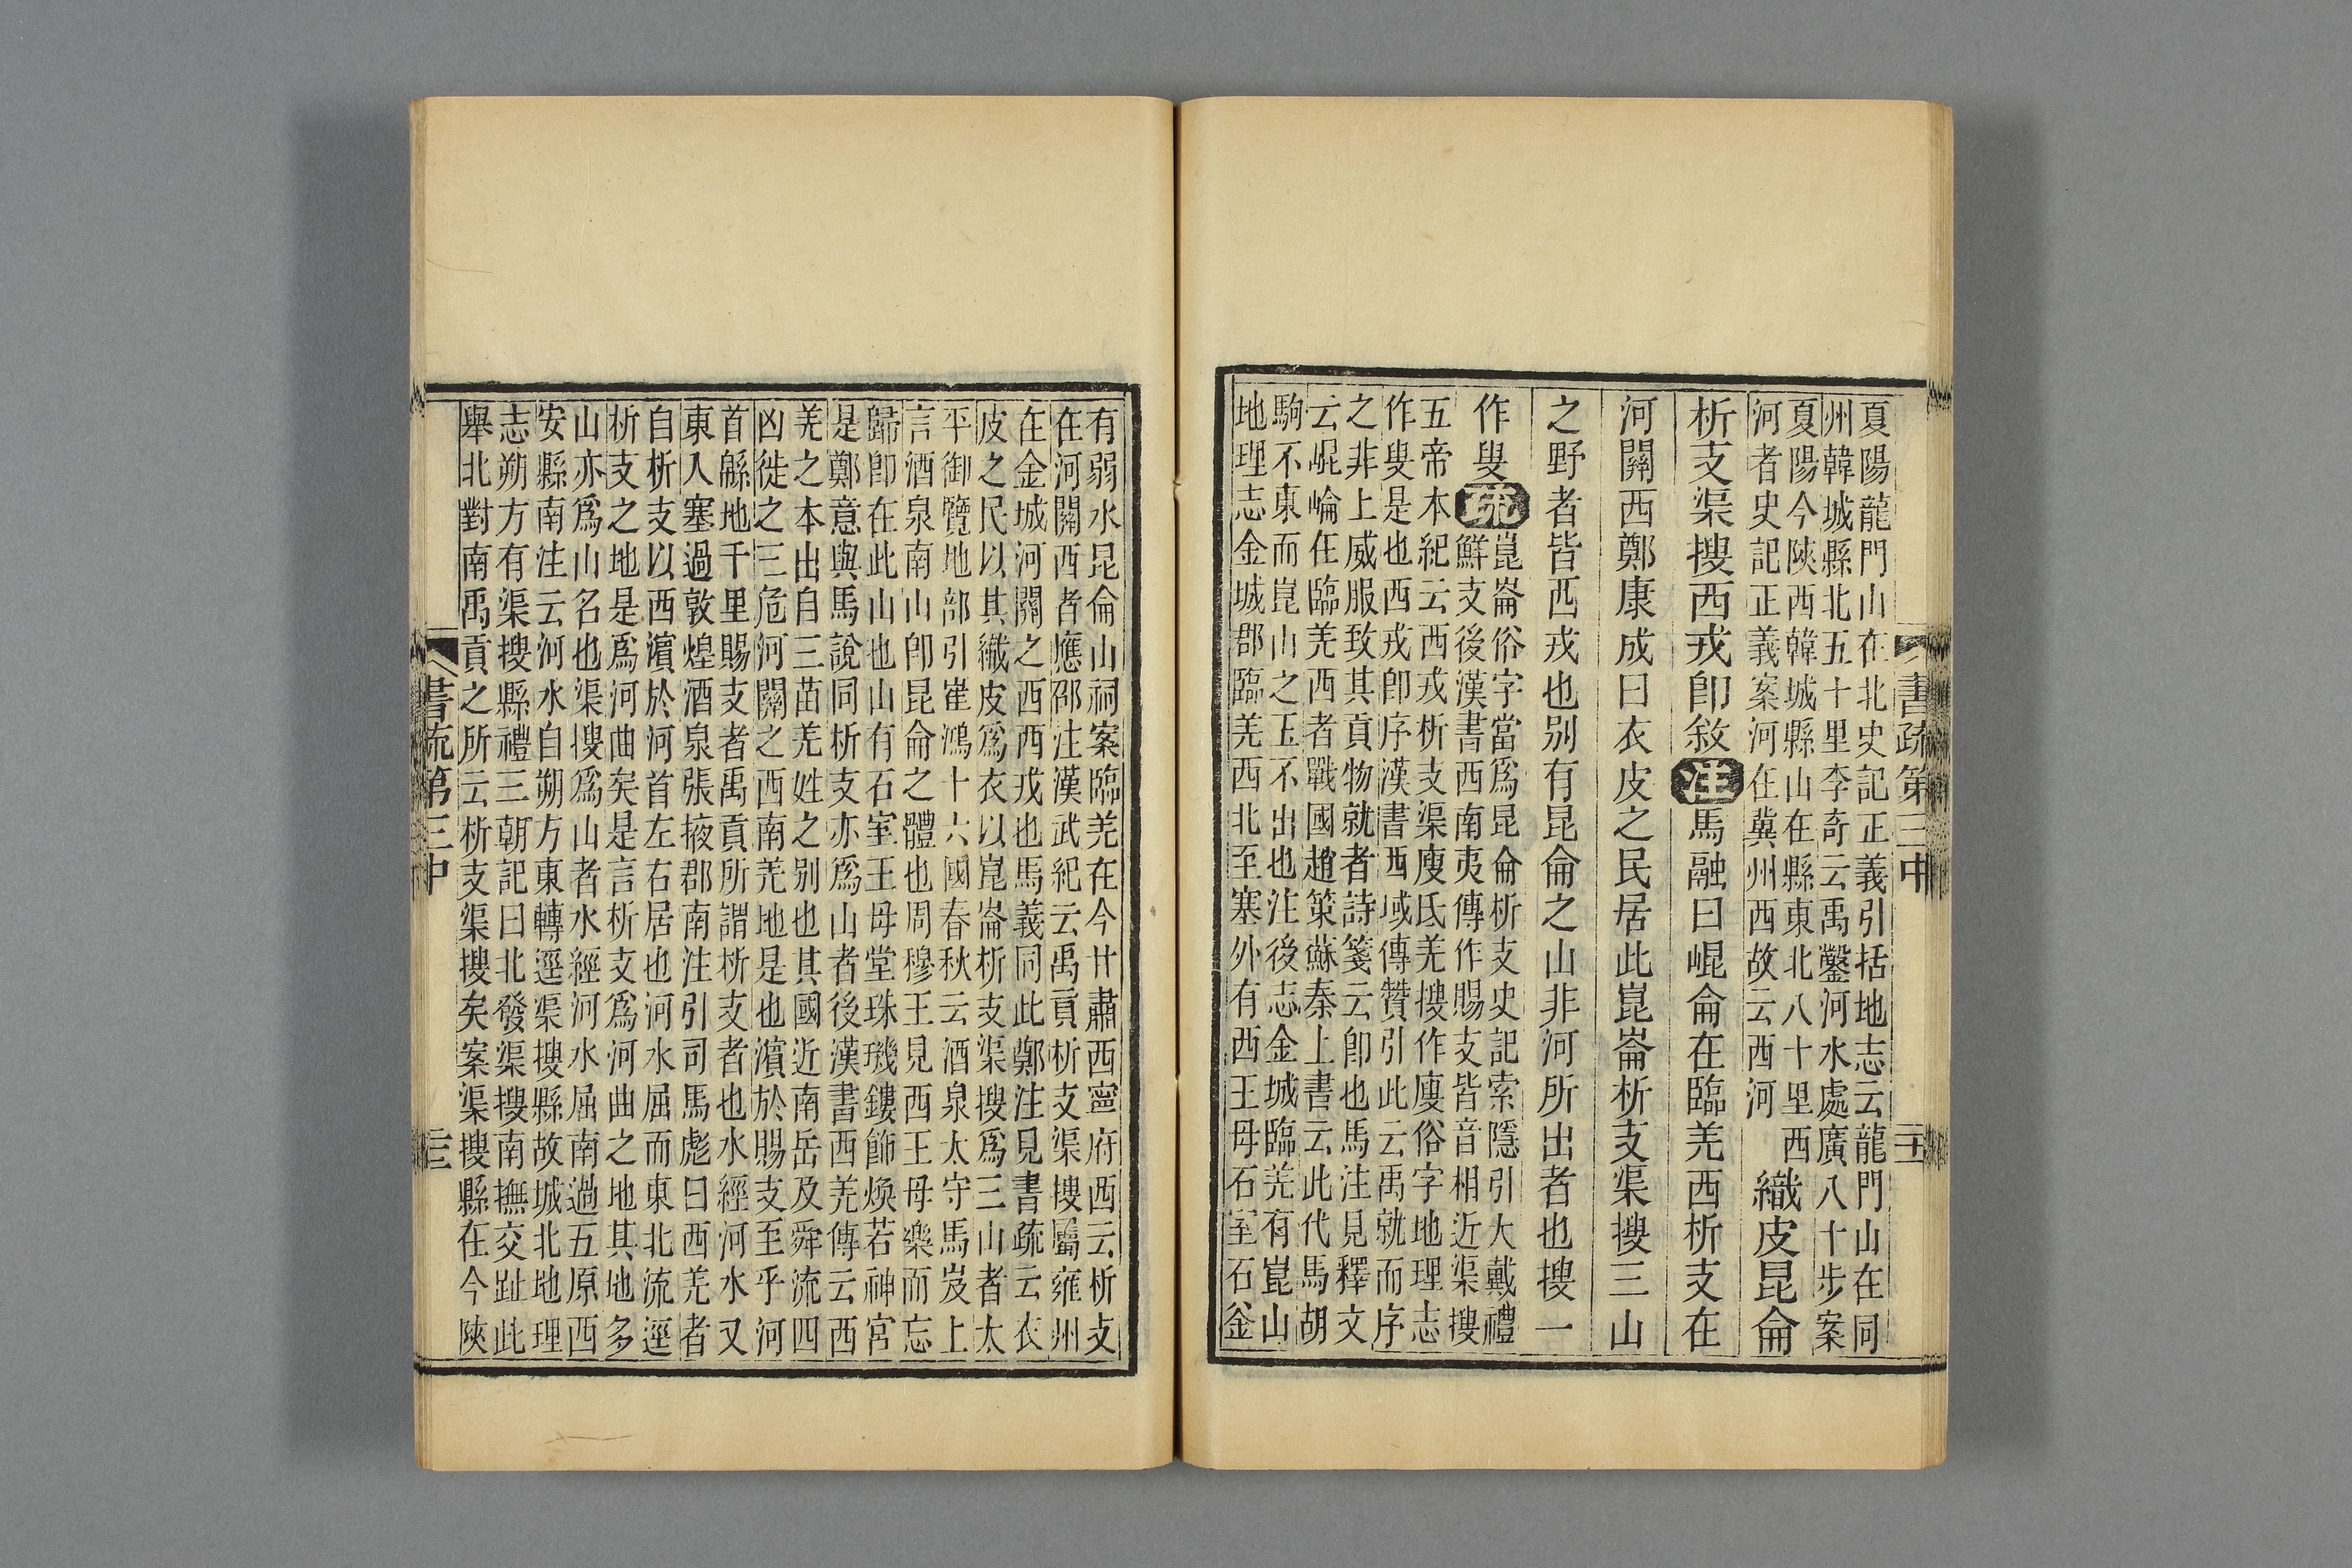 夏陽龍門山在北史記正義引括地志云龍門山在同
州韓城縣北五十里李奇云禹鑿河水處廣八十步案
夏陽今陝西韓城縣山在縣東北八十里西
河者史記正義案河在冀州西故云西河
織皮昆侖
析支渠搜西戎卽敘注馬融曰崐侖在臨羌西析支在
河關西鄭康成曰衣皮之民居此崑崙析支渠搜三山
之野者皆西戎也别有昆侖之山非河所出者也搜一
作叟疏
崑崙俗字當爲昆侖析支史記索隱引大戴禮
鮮支後漢書西南夷傳作賜支皆音相近渠搜
五帝本紀云西戎析支渠廋氐羌搜作廋俗字地理志
作叟是也西戎卽序漢書西域傳贊引此云禹就而序
之非上威服致其貢物就者詩箋云卽也馬注見釋文
云崐崘在臨羌西者戰國趙策蘇秦上書云此代馬胡
駒不東而崑山之玉不出也注後志金城臨羌有崑山
地理志金城郡臨羌西北至塞外有西王母石室石釜
書疏第三中
二十二
有弱水昆侖山祠案臨羌在今甘肅西寧府西云析支
在河關西者應邵注漢武紀云禹貢析支渠搜屬雍州
在金城河關之西西戎也馬義同此鄭注見書疏云衣
皮之民以其織皮爲衣以崑崙析支渠搜爲三山者太
平御覽地部引崔鴻十六國春秋云酒泉太守馬岌上
言酒泉南山卽昆侖之體也周穆王見西王母樂而忘
歸卽在此山也山有石室王母堂珠璣鏤飾煥若神宮
是鄭意與馬說同析支亦爲山者後漢書西羌傳云西
羌之本出自三苗羌姓之别也其國近南岳及舜流四
凶徙之三危河關之西南羌地是也濱於賜支至乎河
首緜地千里賜支者禹貢所謂析支者也水經河水又
東入塞過敦煌酒泉張掖郡南注引司馬彪曰西羌者
自析支以西濱於河首左右居也河水屈而東北流逕
析支之地是爲河曲矣是言析支爲河曲之地其地多
山亦爲山名也渠搜爲山者水經河水屈南過五原西
安縣南注云河水自朔方東轉逕渠搜縣故城北地理
志朔方有渠搜縣禮三朝記曰北發渠搜南撫交趾此
舉北對南禹貢之所云析支渠搜矣案渠搜縣在今陝
書疏第三中
二十三